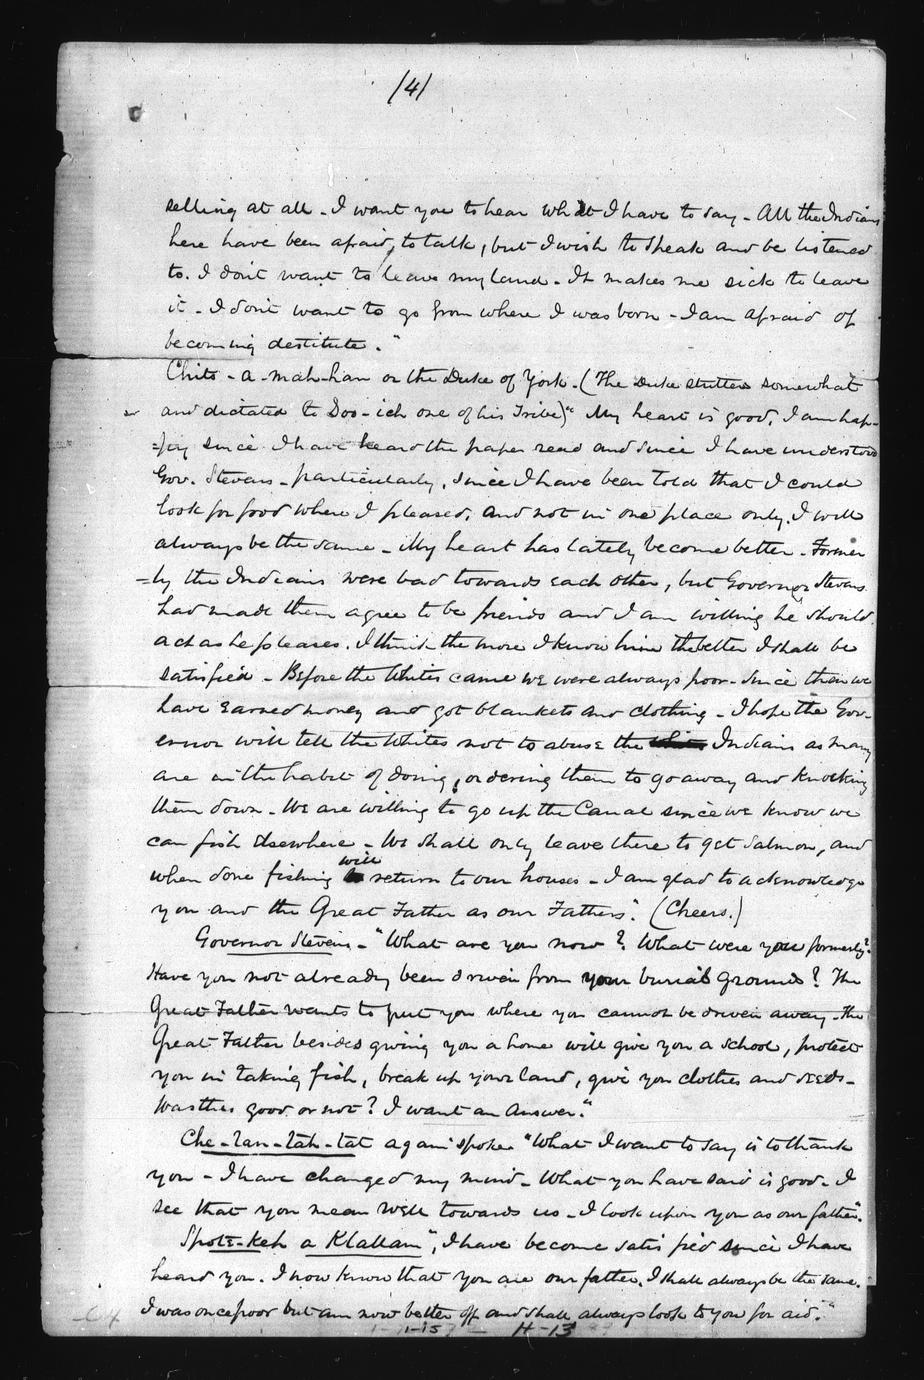 (4)
selling at all - I want you to hear what I have to say - All the Indians
here have been afraid, to talk, but I wish to speak and be listened
to. I don't want to leave my land - It makes me sick to leave
it - I don't want to go from where I was born - I am afraid of
becoming destitute."
Chits-a-mah-han or the Duke of York - (The Duke stutters somewhat
and dictated to Soo-ich one of his Tribe) "My heart is good, I am hap-
=py since I have heard the paper read and since I have understood
Gov. Stevens - particularly, since I have been told that I could
look for food where I pleased, and not in one place only. I will
always be the same - My heart has lately become better - Former
=ly the Indians were bad towards each other, but Governor Stevens
had made them agree to be friends and I am willing he should
act as he pleases. I think the more I know him the better I shall be
satisfied - Before the Whites came we were always poor - Since then we
have earned money and got blankets and clothing - I hope the Gov-
ernor will tell the Whites not to abuse the Indians as many
are in the habit of doing, ordering them to go away and knocking
them down - We are willing to go up the Canal since we know we
can fish elsewhere - We shall only leave there to get salmon, and
when done fishing will return to our houses - I am glad to acknowledge
you and the Great Father as our Fathers". (Cheers.)
Governor Stevens - "What are you now? What were you formerly?
Have you not already been driven from your burial grounds? The
Great Father wants to put you where you cannot be driven away - The
Great Father besides giving you a home will give you a School, protect
you in taking fish, break up your land, give you clothes and seeds -
Was this good or not? I want an Answer."
Che-lan-tah-tat again spoke "What I want to say is to thank
you - I have changed my mind - What you have said is good - I
see that you mean well towards us - I look upon you as our father".
Spote-keh a Klallam", I have become satisfied since I have
heard you. I now know that you are our father. I shall always be the same.
I was once poor but am now better off and shall always look to you for aid."
H-13